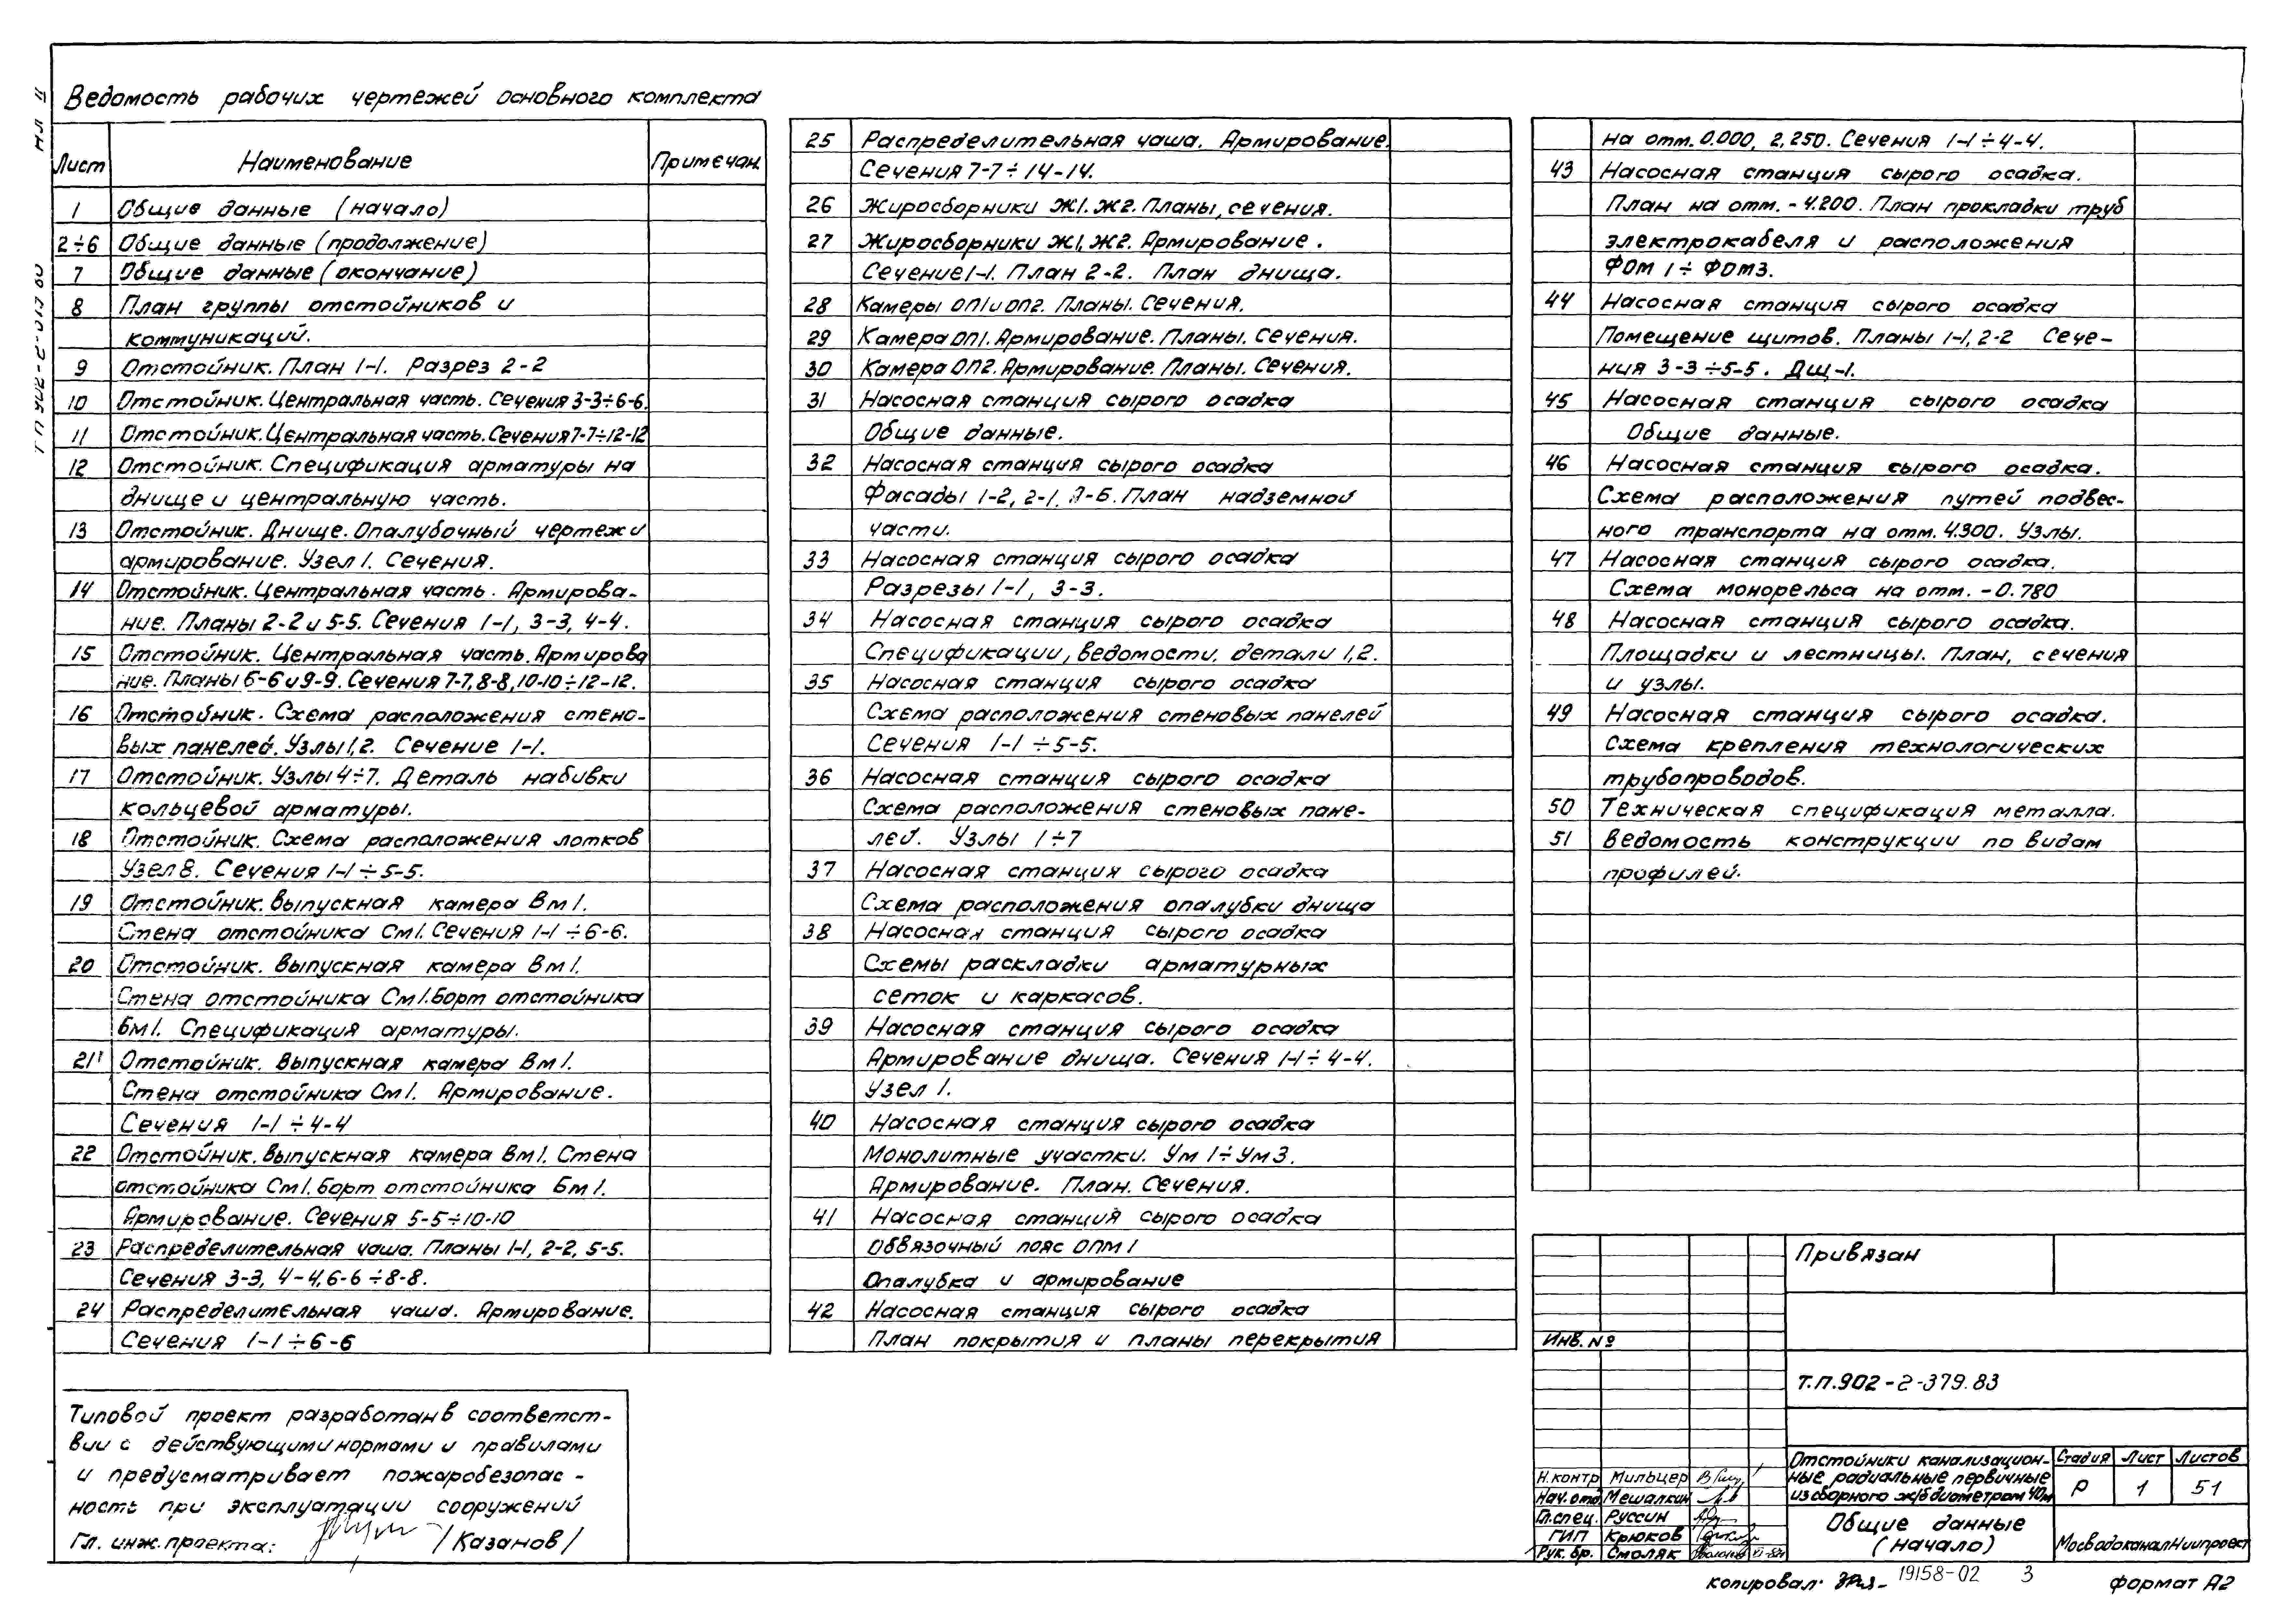 Ведомость рабочих чертежей основного комплекта
Лист Наименование Примечан.
1 Общие данные (начало)
2÷6 Общие данные (продолжение)
7 Общие данные (окончание)
8 План группы отстойников и
коммуникаций.
9 Отстойник. План 1-1. Разрез 2-2
10 Отстойник. Центральная часть. Сечения 3-3÷6-6.
11 Отстойник. Центральная часть. Сечения 7-7÷12-12
12 Отстойник. Спецификация арматуры на
днище и центральную часть.
13 Отстойник. Днище. Опалубочный чертеж и
армирование. Узел 1. Сечения.
14 Отстойник. Центральная часть. Армирова-
ние. Планы 2-2 и 5-5. Сечения 1-1, 3-3, 4-4.
15 Отстойник. Центральная часть. Армирова
ние. Планы 6-6 и 9-9. Сечения 7-7, 8-8, 10-10÷12-12.
16 Отстойник. Схема расположения стено-
вых панелей. Узлы 1,2. Сечение 1-1.
17 Отстойник. Узлы 4÷7. Деталь набивки
кольцевой арматуры.
18 Отстойник. Схема расположения лотков
Узел 8. Сечения 1-1÷5-5.
19 Отстойник. Выпускная камера Вм1.
Стена отстойника См1. Сечения 1-1÷6-6.
20 Отстойник. Выпускная камера Вм1.
Стена отстойника См1. Борт отстойника
Бм1. Спецификация арматуры.
21 Отстойник. Выпускная камера Вм1.
Стена отстойника См1. Армирование.
Сечения 1-1÷4-4
22 Отстойник. Выпускная камера Вм1. Стена
отстойника См1. Борт отстойника Бм1.
Армирование. Сечения 5-5÷10-10
23 Распределительная чаша. Планы 1-1, 2-2, 5-5.
Сечения 3-3, 4-4, 6-6÷8-8.
24 Распределительная чаша. Армирование.
Сечения 1-1÷6-6
25 Распределительная чаша. Армирование.
Сечения 7-7÷14-14.
26 Жиросборники Ж1. Ж2. Планы, сечения.
27 Жиросборники Ж1, Ж2. Армирование.
Сечение 1-1. План 2-2. План днища.
28 Камеры ОП1 и ОП2. Планы. Сечения.
29 Камера ОП1. Армирование. Планы. Сечения.
30 Камера ОП2. Армирование. Планы. Сечения.
31 Насосная станция сырого осадка
Общие данные.
32 Насосная станция сырого осадка
Фасады 1-2, 2-1, А-Б. План надземной
части.
33 Насосная станция сырого осадка
Разрезы 1-1, 3-3.
34 Насосная станция сырого осадка
Спецификации, ведомости, детали 1,2.
35 Насосная станция сырого осадка
Схема расположения стеновых панелей
Сечения 1-1÷5-5.
36 Насосная станция сырого осадка
Схема расположения стеновых пане-
лей. Узлы 1÷7
37 Насосная станция сырого осадка
Схема расположения опалубки днища
38 Насосная станция сырого осадка
Схемы раскладки арматурных
сеток и каркасов.
39 Насосная станция сырого осадка
Армирование днища. Сечения 1-1÷4-4.
Узел 1.
40 Насосная станция сырого осадка
Монолитные участки. Ум1÷Ум3.
Армирование. План. Сечения.
41 Насосная станция сырого осадка
Обвязочный пояс ОПМ1
Опалубка и армирование
42 Насосная станция сырого осадка
План покрытия и планы перекрытия
на отм. 0.000, 2.250. Сечения 1-1÷4-4.
43 Насосная станция сырого осадка.
План на отм. -4.200. План прокладки труб
электрокабеля и расположения
ФОМ1÷ФОМ3.
44 Насосная станция сырого осадка
Помещение щитов. Планы 1-1, 2-2 Сече-
ния 3-3÷5-5. Дщ-1.
45 Насосная станция сырого осадка
Общие данные.
46 Насосная станция сырого осадка.
Схема расположения путей подвес-
ного транспорта на отм. 4.300. Узлы.
47 Насосная станция сырого осадка.
Схема монорельса на отм. -0.780
48 Насосная станция сырого осадка.
Площадки и лестницы. План, сечения
и узлы.
49 Насосная станция сырого осадка.
Схема крепления технологических
трубопроводов.
50 Техническая спецификация металла.
51 Ведомость конструкции по видам
профилей.
Типовой проект разработан в соответст-
вии с действующими нормами и правилами
и предусматривает пожаробезопас-
ность при эксплуатации сооружений
Гл. инж. проекта: /Казанов/
Привязан
Инв. №
Т.П.902-2-379.83
Отстойники канализацион-
ные радиальные первичные
из сборного ж/б диаметром 40м
Стадия Лист Листов
Р 1 51
Н.контр Мильцер
Нач.отд Мешалкин
Гл.спец. Руссин
ГИП Крюков
Рук. бр. Смоляк
Общие данные
(начало)
МосводоканалНиипроект
копировал. 19158-02 3 формат А2